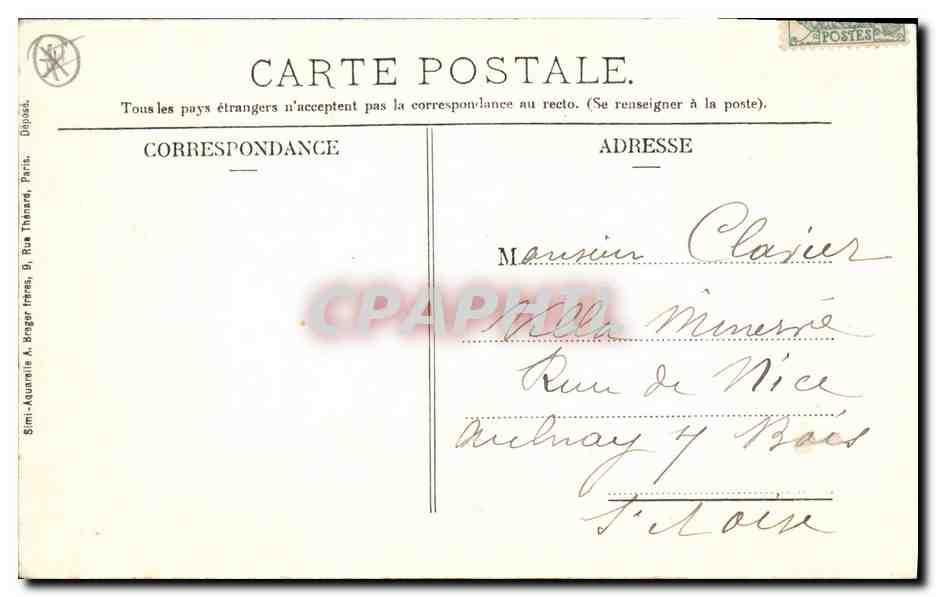 POSTES
CARTE POSTALE.
Tous les pays étrangers n'acceptent pas la correspondance au recto. (Se renseigner à la poste).
CORRESPONDANCE
ADRESSE
Monsieur Clavier
Villa Minerve
Rue de Nice
Aulnay s/ Bois
St Oise
CPAPHIL
Simi-Aquarelle A. Breger frères, 9, Rue Thénard, Paris. Déposé.